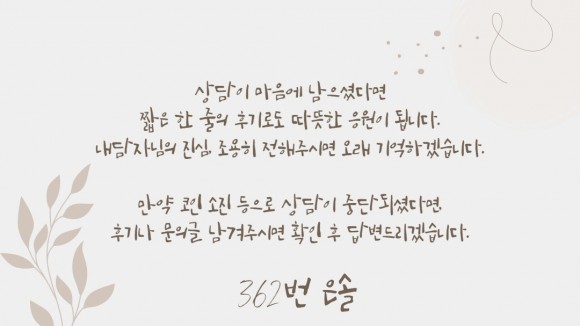 상담이 마음에 남으셨다면
짧은 한 줄의 후기로도 따뜻한 응원이 됩니다.
내담자님의 진심, 조용히 전해주시면 오래 기억하겠습니다.
만약 코인 소진 등으로 상담이 중단되셨다면,
후기나 문의글 남겨주시면 확인 후 답변드리겠습니다.
362번 은솔